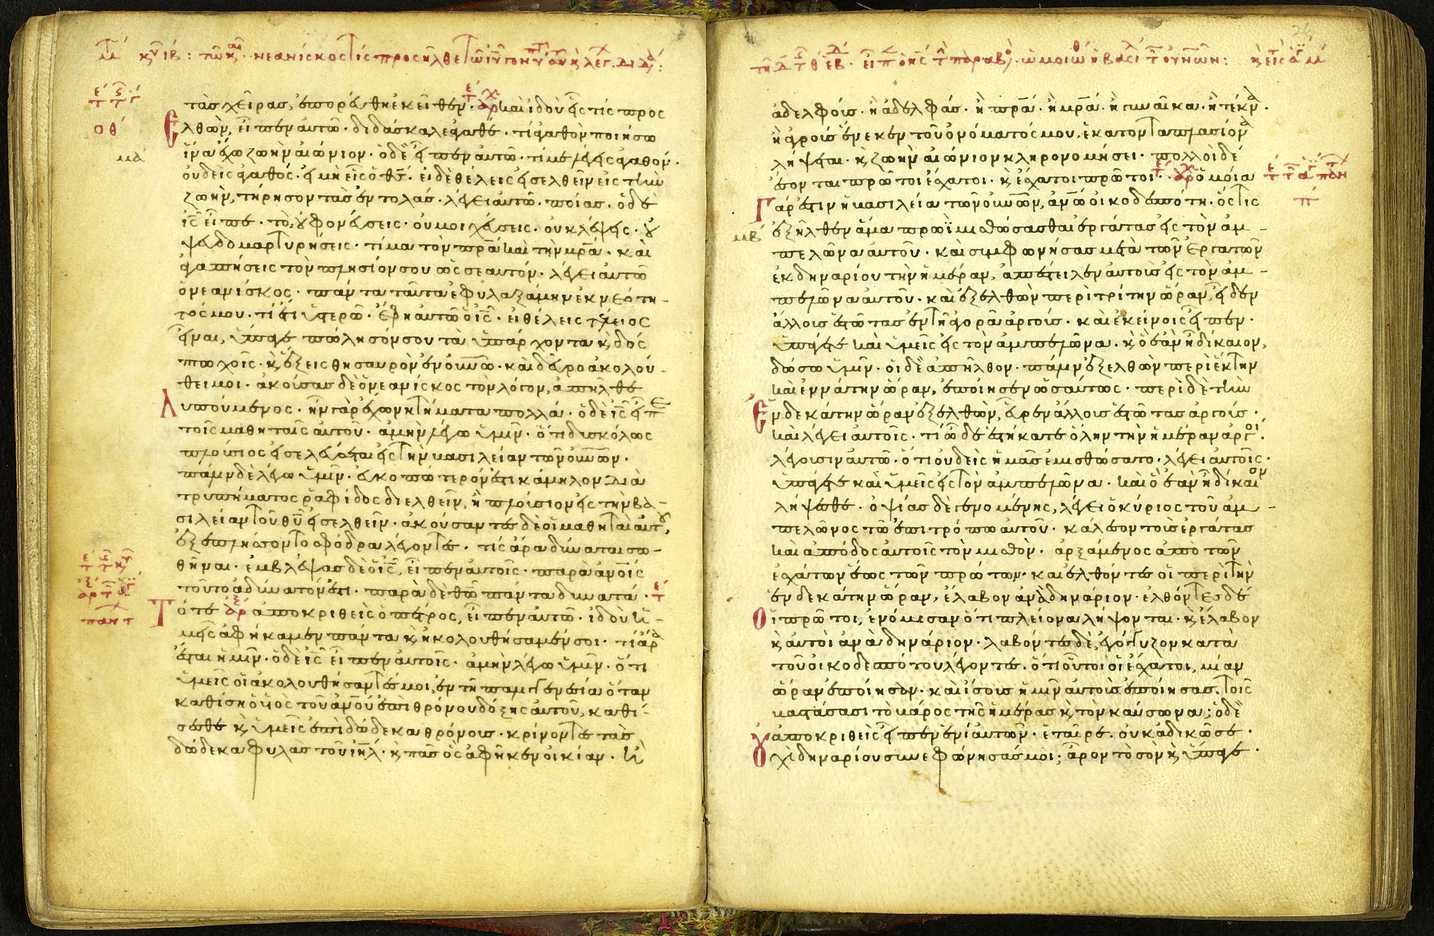 νεανίσκος τίς προσῆλθε τῶ ἰυ
τὰς χεῖρας, ἐπορεύθη ἐκεῖθεν· καὶ ἰδοὺ εἷς τίς προσ
Ελθὼν, εἶπεν αὐτῶ· διδάσκαλε ἀγαθὲ· τί ἀγαθὸν ποιήσω
ἵνα ἔχω ζωὴν αἰώνιον· ὁ δὲ εἶπεν αὐτῶ· τί με λέγεις ἀγαθόν·
οὐδεὶς ἀγαθὸς· εἰ μὴ εἷς ὁ θς· εἰ δὲ θέλεις εἰσελθεῖν εἰς τὴν
ζωὴν, τήρησον τὰς ἐντολάς· λέγει αὐτῶ· ποίας· ὁ δὲ
ις εἶπε· τὸ, οὐ φονεύσεις· οὐ μοιχεύσεις· οὐ κλέψεις· οὐ
ψευδομαρτυρήσεις· τίμα τὸν πρα καὶ τὴν μρα· καὶ
ἀγαπήσεις τὸν πλησίον σου ὡς σεαυτόν· λέγει αὐτῶ
ὁ νεανίσκος· πάντα ταῦτα ἐφυλαξάμην ἐκ νεότη-
τός μου· τί ἔτι ὑστερῶ· ἔφη αὐτῶ ὁ ις· εἰ θέλεις τέλειος
εἶναι, ὕπαγε πώλησόν σου τὰ ὑπάρχοντα κ δὸς
πτωχοῖς· κ ἕξεις θησαυρὸν ἐν οὐνω· καὶ δεῦρο ἀκολού-
θει μοι· ἀκούσας δὲ ὁ νεανίσκος τὸν λόγον, ἀπῆλθε
Λυπούμενος· ἦν γὰρ ἔχων κτήματα πολλά· ὁ δὲ ις εἶπε
τοῖς μαθηταῖς αὐτοῦ· ἀμὴν λέγω ὑμῖν· ὅτι δυσκόλως
πλούσιος εἰσελεύσεται εἰς τὴν βασιλείαν τῶν οὐνων·
πάλιν δὲ λέγω ὑμῖν· εὐκοπώτερόν ἐστι κάμηλον διὰ
τρυπήματος ῥαφίδος διελθεῖν, ἢ πλούσιον εἰς τὴν βα-
σιλείαν τοῦ θυ εἰσελθεῖν· ἀκούσαντες δὲ οἱ μαθηταὶ αὐτοῦ,
ἐξεπλήσσοντο σφόδρα λέγοντες· τίς ἄρα δύναται σω-
θῆναι· ἐμβλέψας δὲ ὁ ις, εἶπεν αὐτοῖς· παρὰ ἀνοις
τοῦτο ἀδύνατόν ἐστι· παρὰ δὲ θω πάντα δυνατά·
Τότε ἀποκριθεὶς ὁ πέτρος, εἶπεν αὐτῶ· ἰδοὺ ἡ-
μεῖς ἀφήκαμεν πάντα κ ἠκολουθήσαμέν σοι· τί ἄρα
ἔσται ἡμῖν· ὁ δὲ ις εἶπεν αὐτοῖς· ἀμὴν λέγω ὑμῖν· ὅτι
ὑμεῖς οἱ ἀκολουθήσαντές μοι, ἐν τῆ παλιγγενεσία ὅταν
καθίση ὁ υἱὸς τοῦ ἀνου ἐπὶ θρόνου δόξης αὐτοῦ, καθί-
σεσθε κ ὑμεῖς ἐπὶ δώδεκα θρόνους· κρίνοντες τὰς
δώδεκα φυλὰς τοῦ ιηλ· κ πᾶς ὃς ἀφῆκεν οἰκίαν· ἢ
ἀδελφούς· ἢ ἀδελφάς· ἢ πρα· ἢ μρα· ἢ γυναῖκα· ἢ τέκνα·
ἢ ἀγροὺς ἕνεκεν τοῦ ὀνόματός μου, ἑκατονταπλασίονα
λήψεται· κ ζωὴν αἰώνιον κληρονομήσει· πολλοὶ δὲ
ἔσονται πρῶτοι ἔσχατοι· κ ἔσχατοι πρῶτοι· ὁμοία
Γάρ ἐστιν ἡ βασιλεία τῶν οὐνων, ἀνω οἰκοδεσπότη· ὅστις
ἐξῆλθεν ἅμα πρωῒ μισθώσασθαι ἐργάτας εἰς τὸν ἀμ-
πελῶνα αὐτοῦ· καὶ συμφωνήσας μετὰ τῶν ἐργατῶν
ἐκ δηναρίου τὴν ἡμέραν, ἀπέστειλεν αὐτοὺς εἰς τὸν ἀμ-
πελῶνα αὐτοῦ· καὶ ἐξελθὼν περὶ τρίτην ὥραν, εἶδεν
ἄλλους ἑστῶτας ἐν τῆ ἀγορᾶ ἀργούς· κἀκείνοις εἶπεν·
ὑπάγετε καὶ ὑμεῖς εἰς τὸν ἀμπελῶνα· κ ὃ ἐὰν ἦ δίκαιον,
δώσω ὑμῖν· οἱ δὲ ἀπῆλθον· πάλιν ἐξελθὼν περὶ ἕκτην
καὶ ἐννάτην ὥραν, ἐποίησεν ὡσαύτως· περὶ δὲ τὴν
Ἑνδεκάτην ὥραν ἐξελθὼν, εὗρεν ἄλλους ἑστῶτας ἀργούς·
καὶ λέγει αὐτοῖς· τί ὧδε ἑστήκατε ὅλην τὴν ἡμέραν ἀργοί·
λέγουσιν αὐτῶ· ὅτι οὐδεὶς ἡμᾶς ἐμισθώσατο· λέγει αὐτοῖς·
ὑπάγετε καὶ ὑμεῖς εἰς τὸν ἀμπελῶνα· καὶ ὃ ἐὰν ἦ δίκαιον
λήψεσθε· ὀψίας δὲ γενομένης, λέγει ὁ κύριος τοῦ ἀμ-
πελῶνος τῶ ἐπιτρόπω αὐτοῦ· κάλεσον τοὺς ἐργάτας
καὶ ἀπόδος αὐτοῖς τὸν μισθὸν· ἀρξάμενος ἀπὸ τῶν
ἐσχάτων ἕως τῶν πρώτων· καὶ ἐλθόντες οἱ περὶ τὴν
ἑνδεκάτην ὥραν, ἔλαβον ἀνὰ δηνάριον· ἐλθόντες δὲ
Οἱ πρῶτοι, ἐνόμισαν ὅτι πλείονα λήψονται· κ ἔλαβον
κ αὐτοὶ ἀνὰ δηνάριον· λαβόντες δὲ, ἐγόγγυζον κατὰ
τοῦ οἰκοδεσπότου λέγοντες· ὅτι οὗτοι οἱ ἔσχατοι, μίαν
ὥραν ἐποίησαν· καὶ ἴσους ἡμῖν αὐτοὺς ἐποίησας. τοῖς
βαστάσασι τὸ βάρος τῆς ἡμέρας κ τὸν καύσωνα; ὁ δὲ
ἀποκριθεὶς εἶπεν ἑνὶ αὐτῶν· ἑταῖρε· οὐκ ἀδικῶ σε·
Οὐχὶ δηναρίου συνεφώνησάς μοι; ἆρον τὸ σὸν κ ὕπαγε·